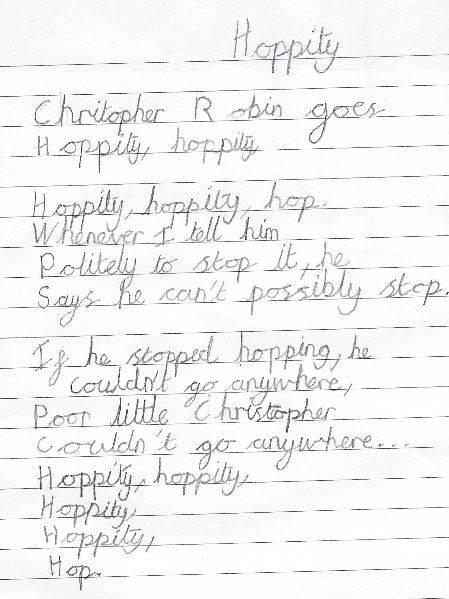 Hoppity
Chritopher Robin goes
Hoppity, hoppity
Hoppity, hoppity, hop.
Whenever I tell him
Politely to stop it, he
Says he can't possibly stop.
If he stopped hopping, he
couldn't go anywhere,
Poor little Christopher
Couldn't go anywhere...
Hoppity, hoppity,
Hoppity,
Hoppity,
Hop.